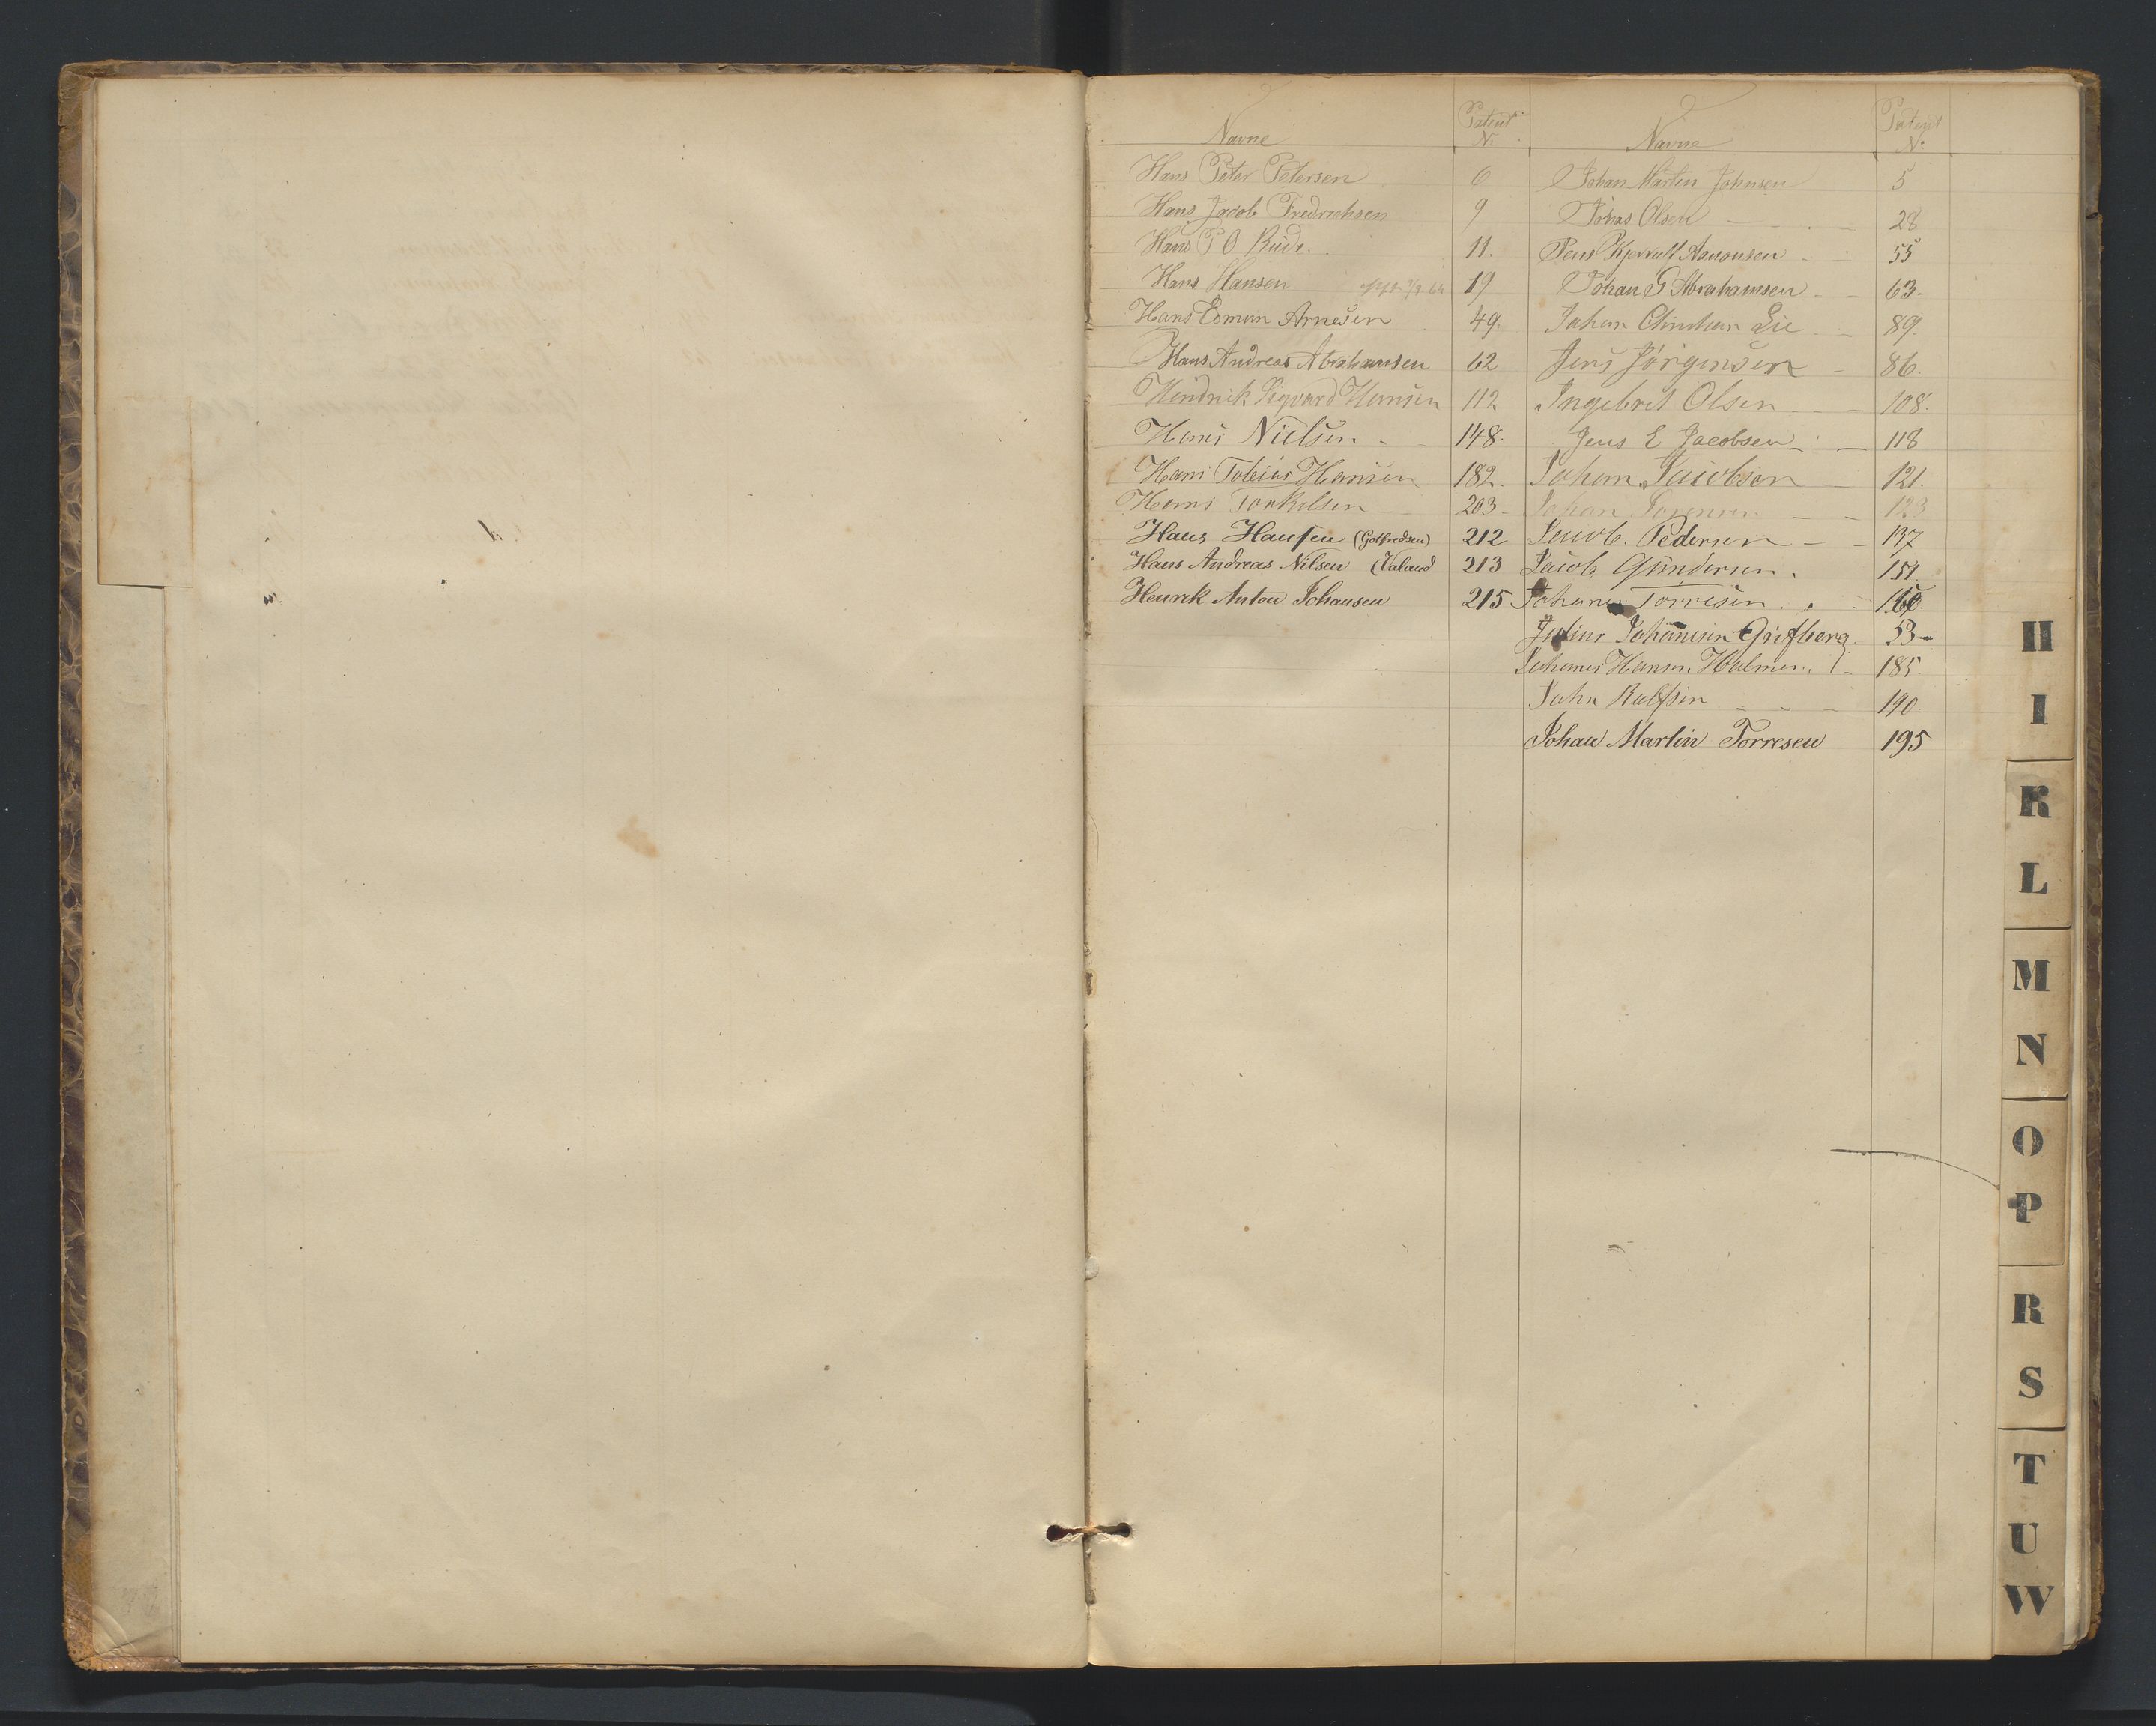 Navne
Patent
Nr.
Hans Peter Petersen 6
Hans Jacob Fredrichsen 9
Hans P O Rude 11.
Hans Hansen 19
Hans Edmun Arnesen 49.
Hans Andreas Abrahamsen 62
Hendrik Sigvard Hansen 112
Hans Nielsen 148.
Hans Tobias Hansen 182.
Hans Torkelsen 203
Hans Hansen (Gotfredsen) 212
Hans Andreas Nilsen (Valand 213
Henrek Anton Johansen 215
Navne
Patent
Nr.
Johan Martin Johnsen 5
Johas Olsen 28
Jens Kjerulf Aanonsen 55
Johan G Abrahamsen 63
Johan Christian Lie 89.
Jens Jörgensen 86.
Ingebret Olsen 108.
Jens E Jacobsen 118
Johan Jacobsen 121.
Johan Sorensen 123
Jacob Pedersen 137
Jacob Gundersen 151.
Johanes Torresen 160.
Julius Johannesen 53
Johanes Hansen Holmen 185.
John Rolfsen 190.
Johan Martin Torresen 195
H
I
K
L
M
N
O
P
R
S
T
U
W